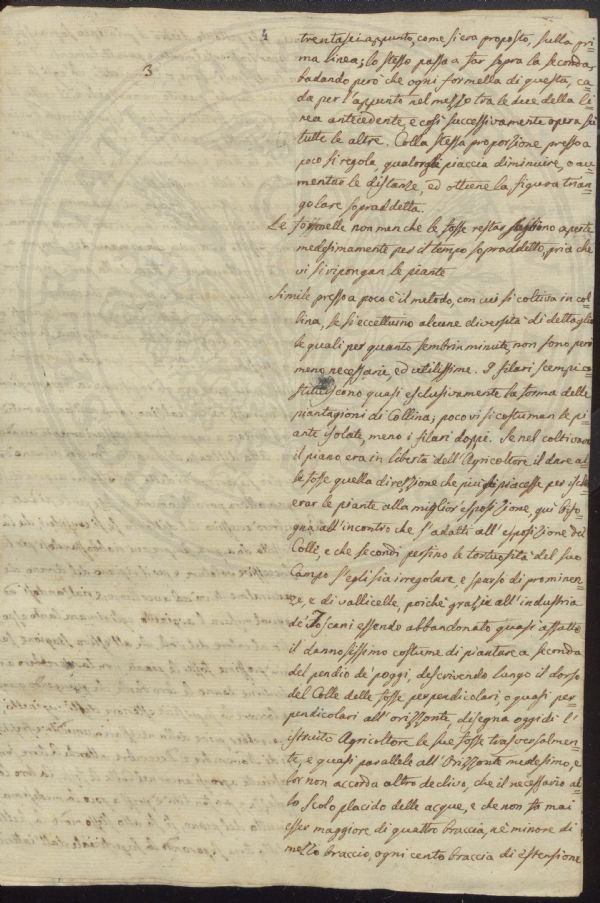 4
3
trentasei appunto, come si era proposto, sulla pri=
ma linea; lo stesso passa a far sopra la seconda,
badando però che ogni formella di questa, ca=
da per l'appunto nel mezzo tra le due della li=
nea antecedente, e così successivamente opera su
tutte le altre. Colla stessa proporzione presso a
poco si regola, qualor gli piaccia diminuire, o au=
mentar le distanze, ed ottiene la figura trian=
golare sopraddetta.
Le formelle non men che le fosse restar sogliono aperte
medesimamente, per il tempo sopraddetto, pria che
vi si ripongan le piante
Simile presso a poco è il metodo, con cui si coltiva in col=
lina, se si eccettuino alcune diversità di dettaglio
le quali per quanto sembrin minute, non sono però
meno necessarie, ed utilissime. I filari scempi co=
stituiscono quasi esclusivamente la forma delle
piantagioni di Collina; poco vi si costuman le pi=
ante isolate, meno i filari doppi. Se nel coltivare
il piano era in libertà dell'Agricoltore il dare al=
le fosse quella direzione che più gli piacesse per ischi=
erar le piante alla miglior esposizione, quì biso=
gna all'incontro che s'adatti all'esposizione del
Colle, e che secondi persino le tortuosità del suo
Campo s'egli sia irregolare, e sparso di prominen=
ze, e di vallicelle, poichè grazie all'industria
de' Toscani essendo abbandonato quasi affatto
il dannosissimo costume di piantare a seconda
del pendio de' poggi, descrivendo lungo il dorso
del Colle delle fosse perpendicolari, o quasi per=
pendicolari all'orizzonte, disegna oggidì l'
istruito Agricoltore le sue fosse trasversalmen=
te, e quasi parallele all'Orizzonte medesimo, e
lor non accorda altro declivo, che il necessario al=
lo scolo placido delle acque, e che non fa mai
esser maggiore di quattro braccia, nè minore di
mezzo braccio, ogni cento braccia di estensione